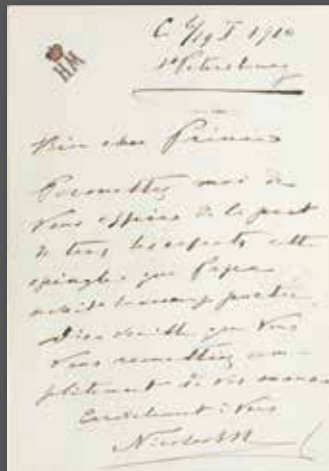 HM
C 6/19 I 1910
St Petersbourg
Mon cher Prince
Permettez moi de
Vous offrir de la part
de tous les enfants cette
épingle que Papa
portée
Dieu veuille que Vous
Vous remettiez com-
plètement de vos maux
Cordialement à Vous
Nicolas M